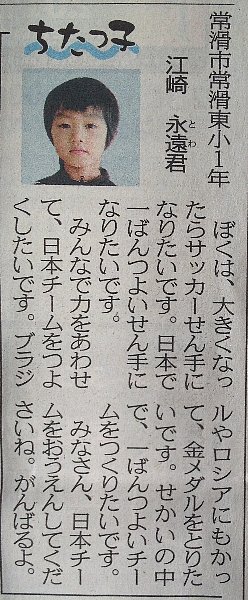 ちたっ子
常滑市常滑東小1年
江崎 永遠君
とわ
ぼくは、大きくなっ
たらサッカーせん手に
なりたいです。日本で
一ばんつよいせん手に
なりたいです。
みんなで力をあわせ
て、日本チームをつよ
くしたいです。ブラジ
ルやロシアにもかっ
て、金メダルをとりた
いです。せかいの中
で、一ばんつよいチー
ムをつくりたいです。
みなさん、日本チー
ムをおうえんしてくだ
さいね。がんばるよ。